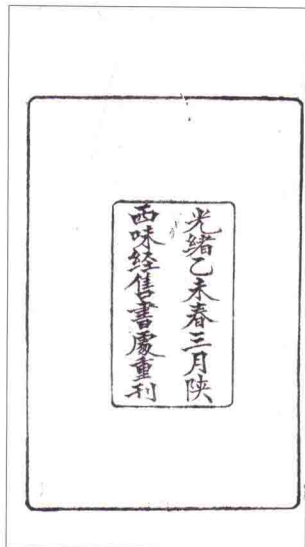 光緒乙未春三月陕
西味経售書處重刊